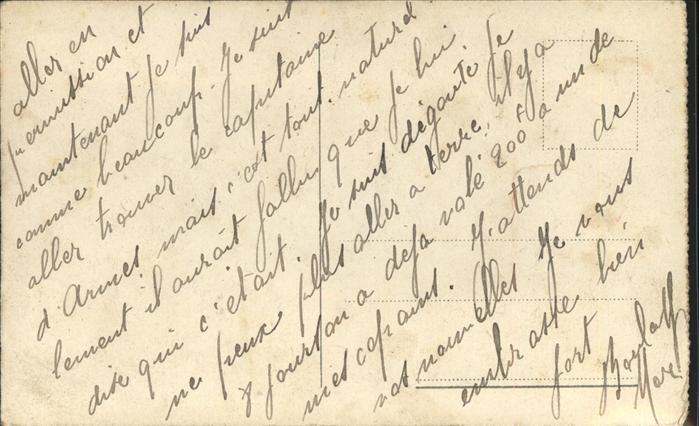 aller en
permission et
maintenant je suis
comme beaucoup. Je suis
aller trouver le capitaine
d'Armes mais c'est tout naturel
lement il aurait fallu que je lui
dise qui c'était. Je suis dégouté je
ne peux plus aller a terre, il y a
8 jours on a déja volé 200f a un de
mes copains. J'attends de
vos nouvelles Je vous
embrasse bien
fort